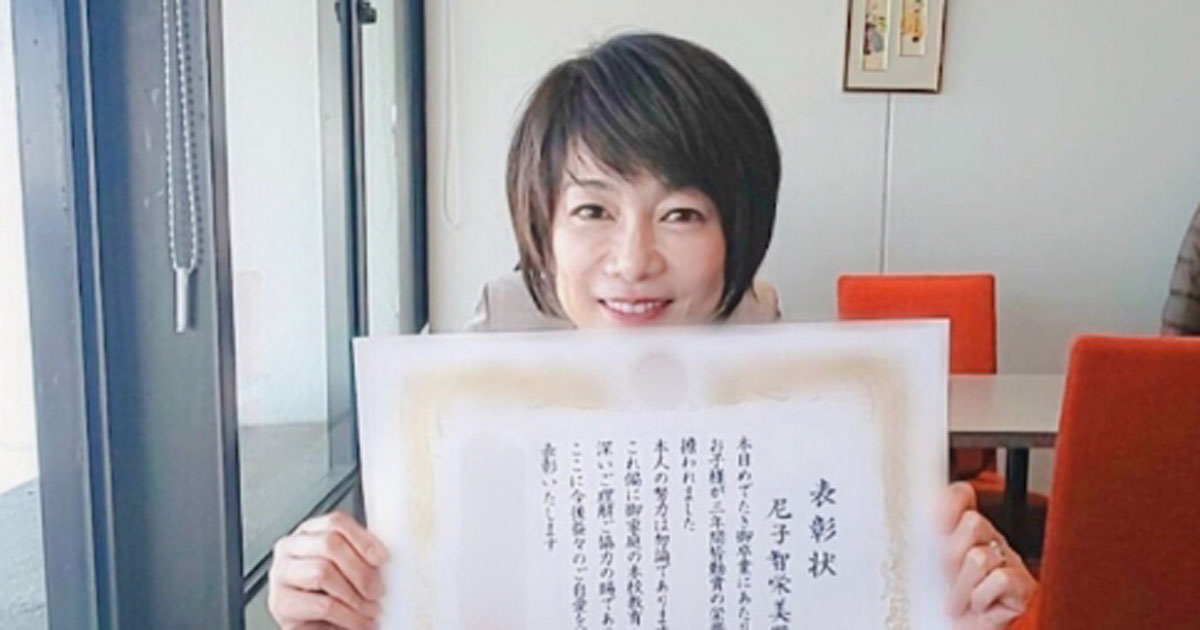 表彰状
尼子智栄美
本日めでたき御卒業にあたり
お子様が三年間皆勤賞の栄
擔われました
本人の努力は勿論であります
これ偏に御家庭の本校教育
深いご理解ご協力の賜であ
ここに今後益々のご自愛を
表彰いたします